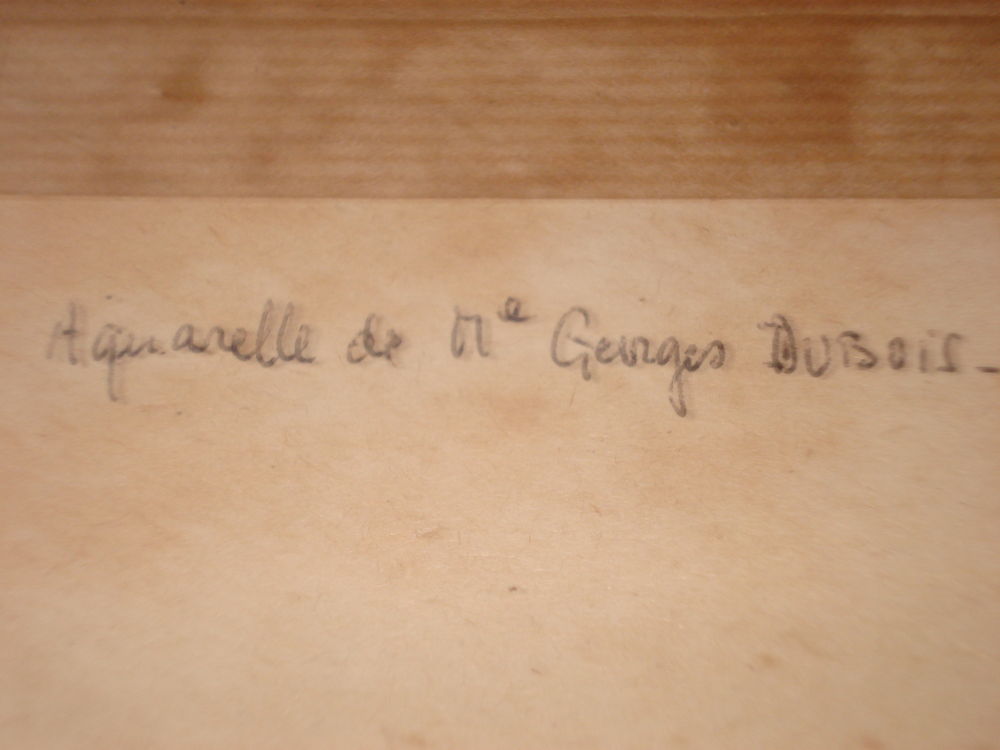 Aquarelle de Me Georges DUBOIS -